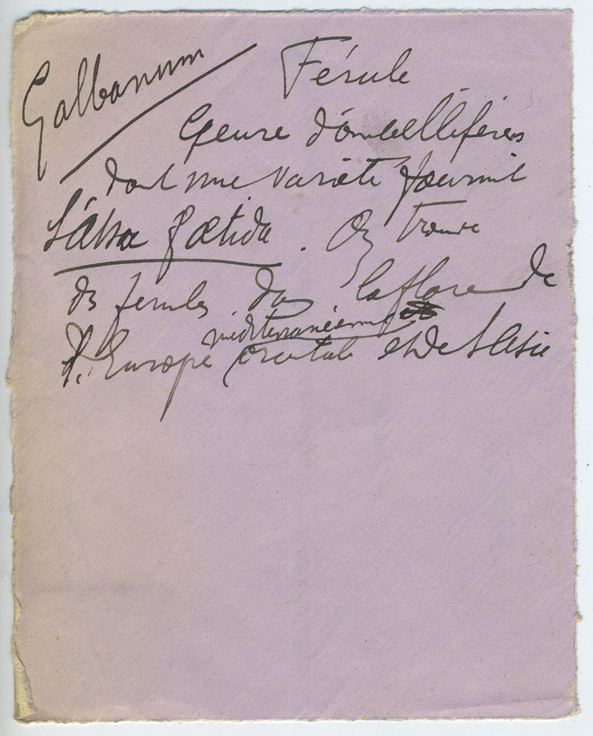 Galbanum
Férule
Genre d'ombellifères
dont une variété fournit
l'Assa fœtida. On trouve
des ferules dans la flore de
l'Europe méditerranéenne orientale et de l'Asie